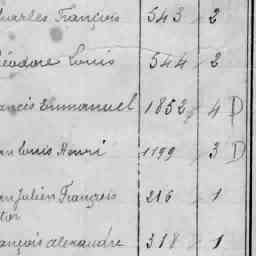 harles François 543 2
éodore Louis 544 2
ancis Emmanuel 1852 4 D
an Louis Henri 1199 3 D
an Julien François 216 1
tor
ançois Alexandre 318 1